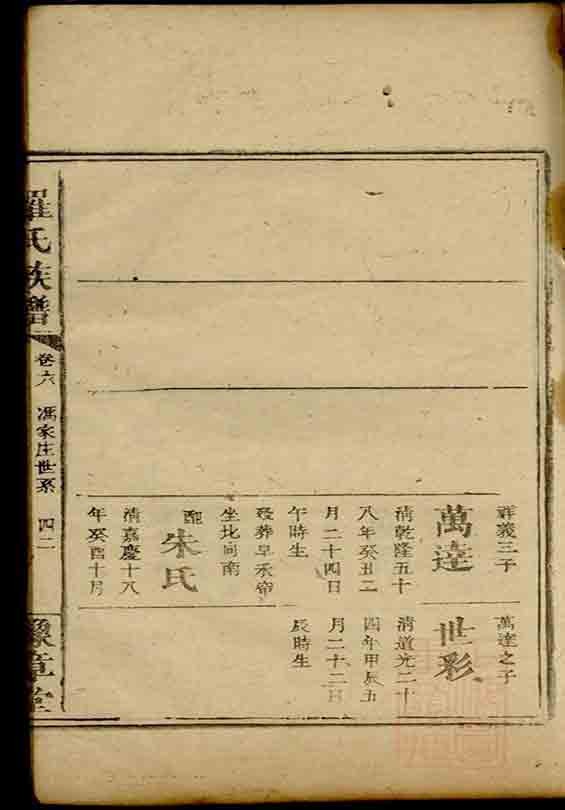 祥義三子
萬達
清乾隆五十
八年癸丑二
月二十四日
午時生
歿葬早承帝
坐北向南
配
朱氏
清嘉慶十八
年癸酉十月
萬達之子
世彩
清道光二十
四年甲辰五
月二十二日
辰時生
羅氏族譜
卷六
馮家庄世系
四二
豫章堂